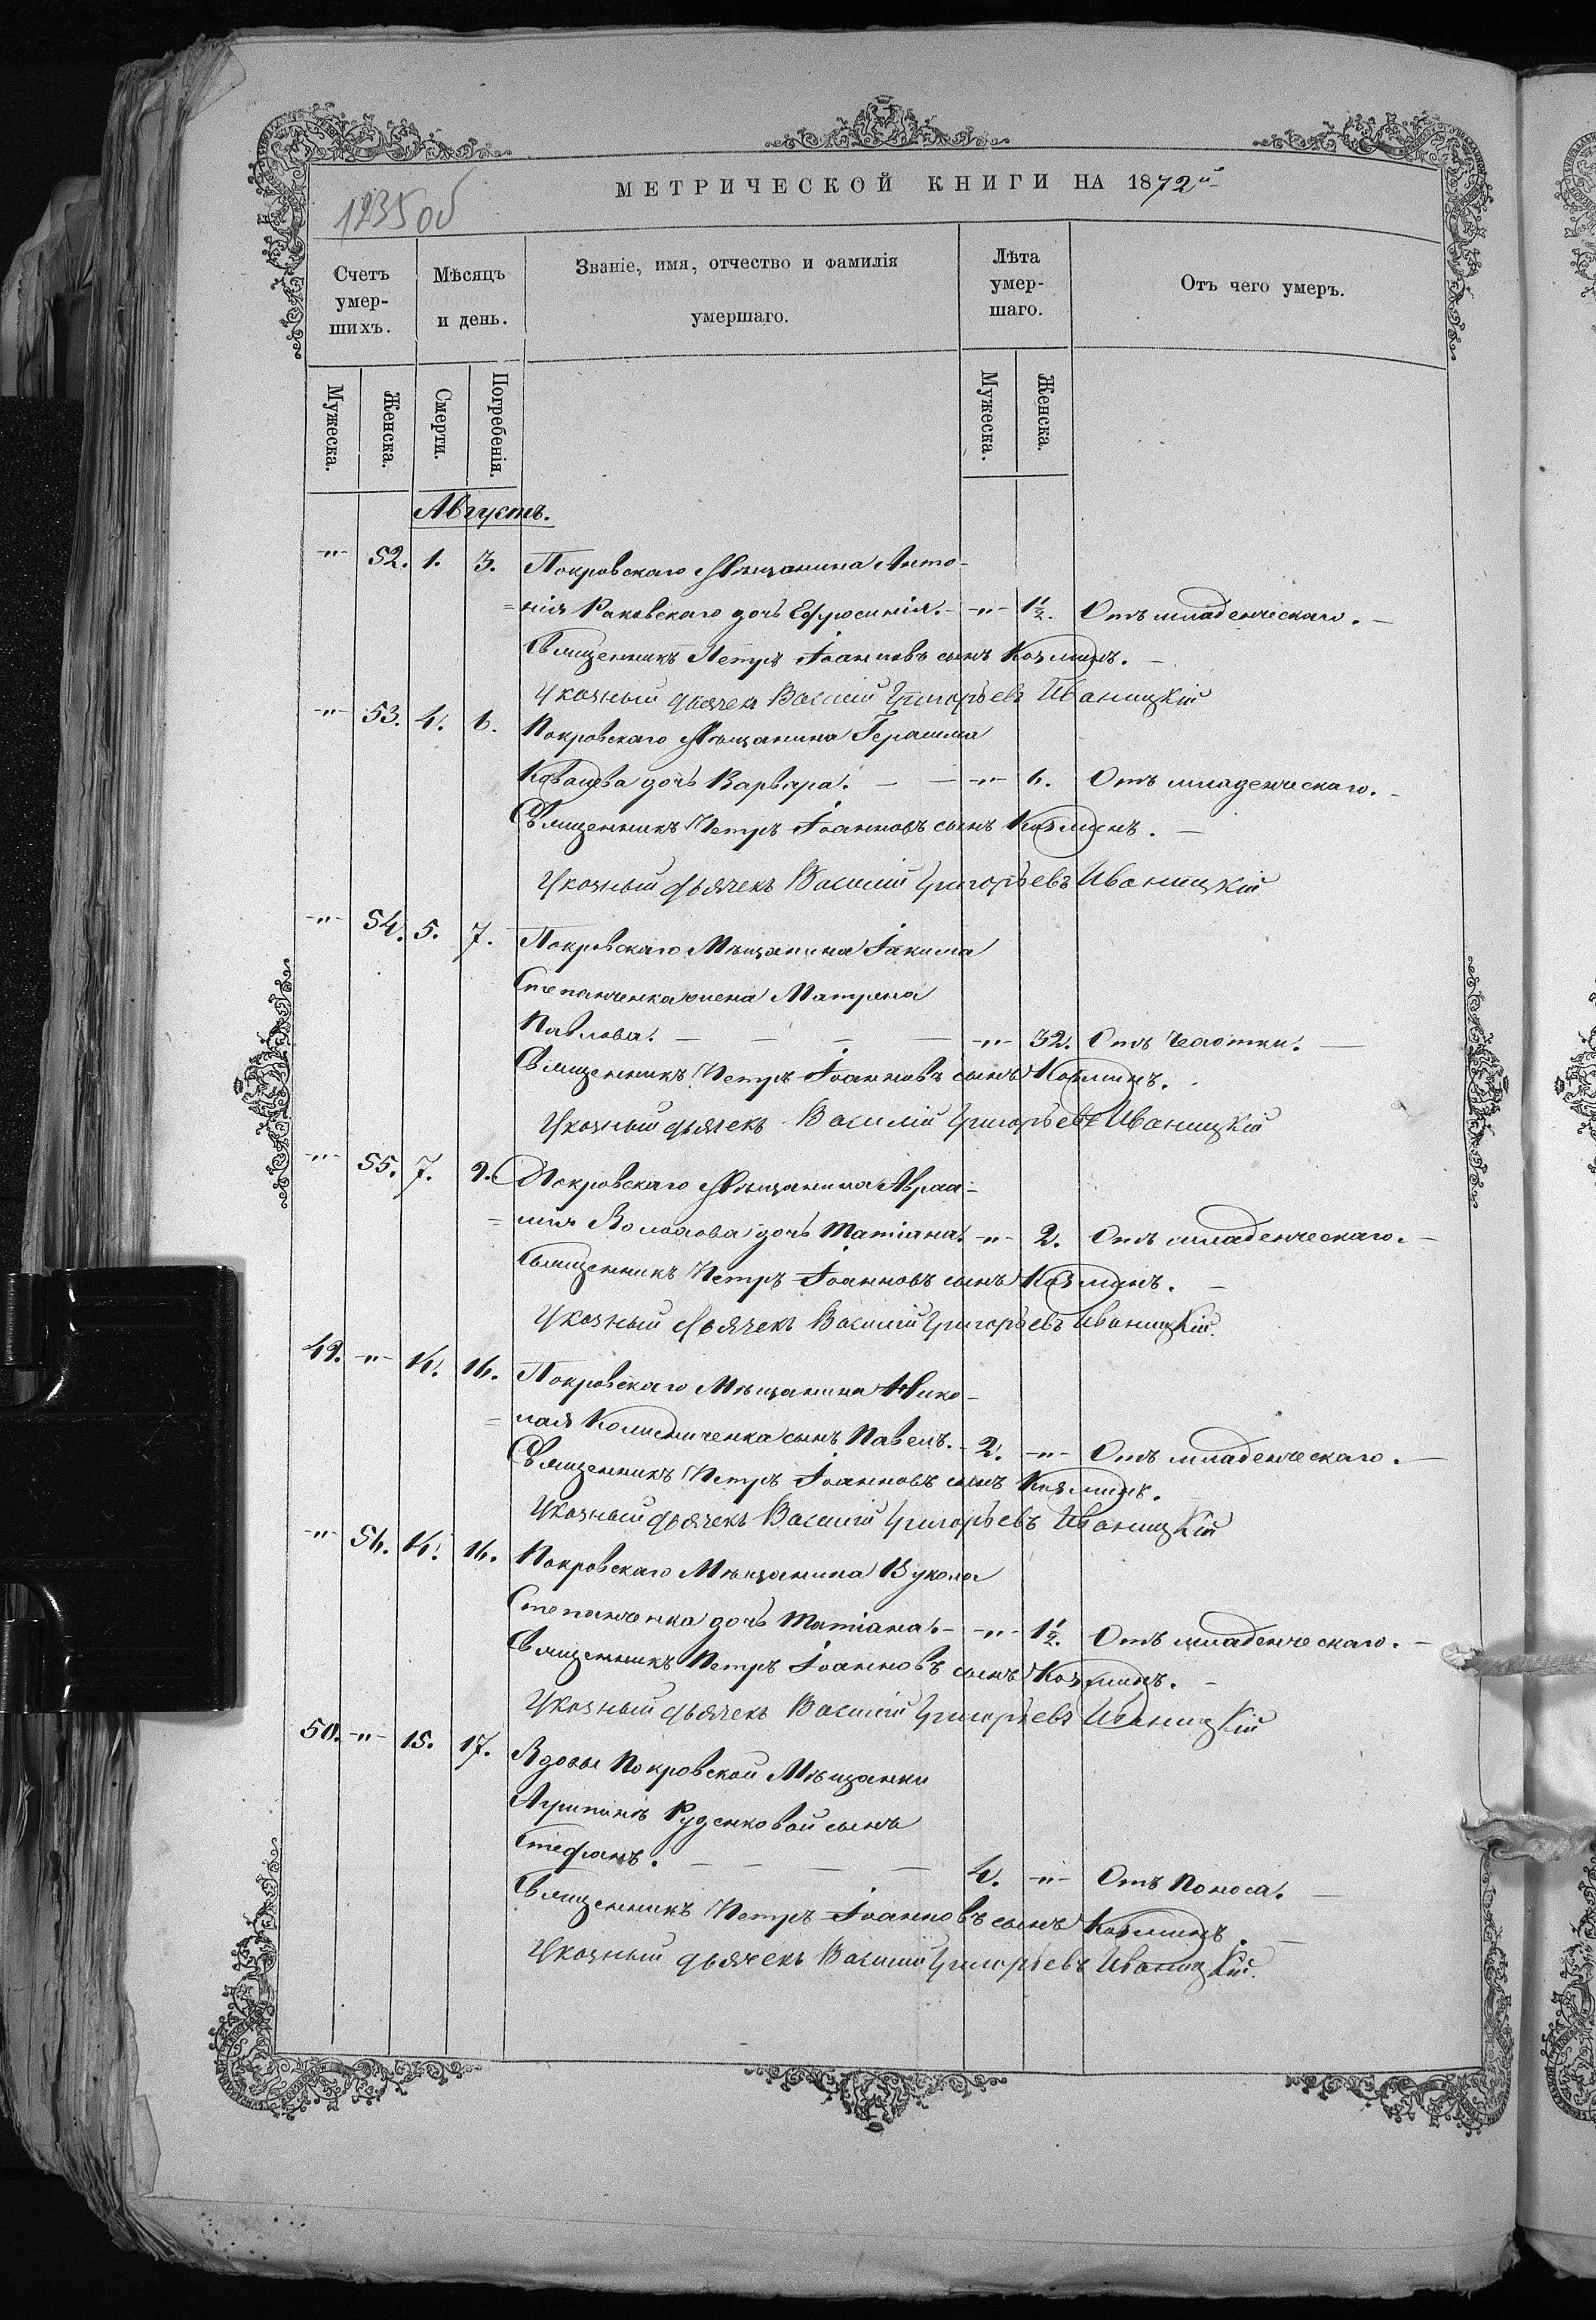 1235 об
МЕТРИЧЕСКОЙ КНИГИ НА 1872й
Счетъ умер-шихъ.
Мѣсяцъ и день.
Званіе, имя, отчество и фамилія умершаго.
Лѣта умер-шаго.
Отъ чего умеръ.
Мужеска.
Женска.
Смерти.
Погребенія.
Мужеска.
Женска.
Августъ.
-"- 52. 1. 3. Покровскаго Мѣщанина Анто-
=нія Раковскаго дочь Ефросинія. -"- 1½. Отъ младенческаго.
Священникъ Петръ Іоанновъ сынъ Козминъ.
Указный дьячекъ Василій Григорьевъ Иваницкій
-"- 53. 4. 6. Покровскаго Мѣщанина Герасима
Ковалева дочь Варвара. -"- 6. Отъ младенческаго.
Священникъ Петръ Іоанновъ сынъ Козминъ.
Указный дьячекъ Василій Григорьевъ Иваницкій
-"- 54. 5. 7. Покровскаго Мѣщанина Іакима
Степанченка жена Матрена
Павлова. -"- 32. Отъ Чахотки.
Священникъ Петръ Іоанновъ сынъ Козминъ.
Указный дьячекъ Василій Григорьевъ Иваницкій
-"- 55. 7. 9. Покровскаго Мѣщанина Авраа-
=мія дочь Татіана. -"- 2. Отъ младенческаго.
Священникъ Петръ Іоанновъ сынъ Козминъ.
Указный дьячекъ Василій Григорьевъ Иваницкій.
49. -"- 14. 16. Покровскаго Мѣщанина Нико-
=лая Колисниченка сынъ Павелъ. 2. -"- Отъ младенческаго.
Священникъ Петръ Іоанновъ сынъ Козминъ.
Указный дьячекъ Василій Григорьевъ Иваницкій
-"- 56. 14. 16. Покровскаго Мѣщанина Вукола
Степанченка дочь Татіана. -"- 1½. Отъ младенческаго.
Священникъ Петръ Іоанновъ сынъ Козминъ.
Указный дьячекъ Василій Григорьевъ Иваницкій
50. -"- 15. 17. Вдовы Покровской Мѣщанки
Агрипины Руденковой сынъ
Стефанъ. 4. -"- Отъ Поноса.
Священникъ Петръ Іоанновъ сынъ Козминъ.
Указный дьячекъ Василій Григорьевъ Иваницкій.